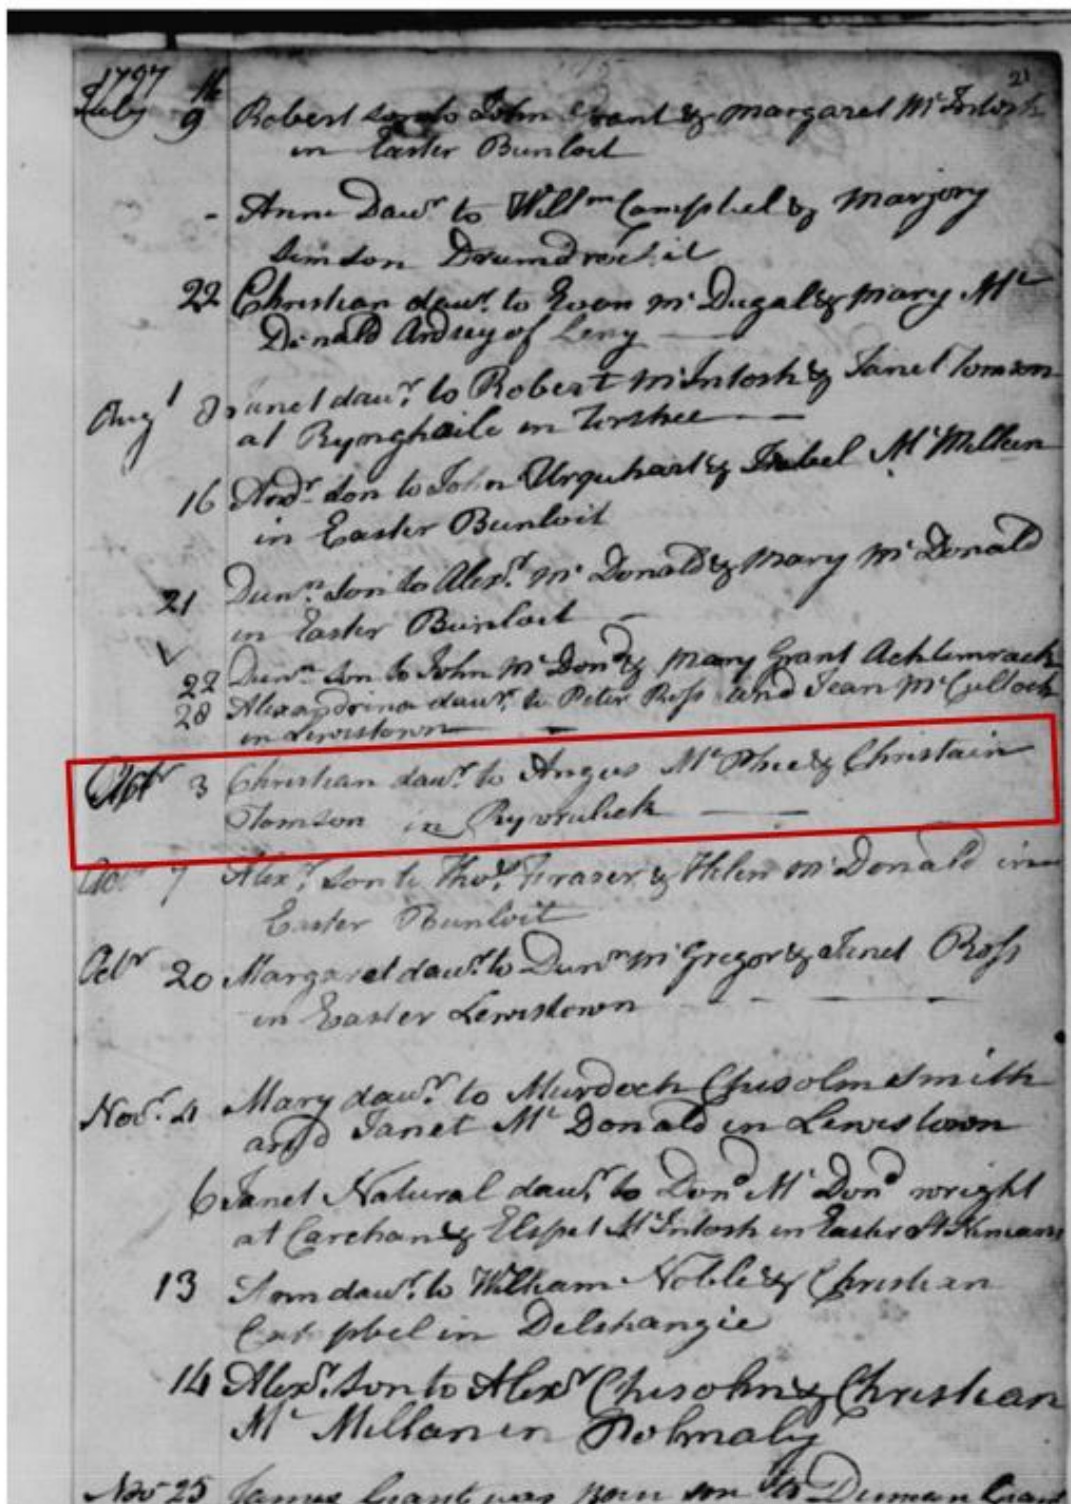 1797 21
July 9 Robert son to John Grant & Margaret McIntosh
in Easter Bunloit
- Anne Dawr to Willm Campbel & Marjory
Simson Drumdrochit
22 Christian dawr. to Ewen Mc Dugal & Mary Mc
Donald
Augt 8 Janet dawr. to Robert McIntosh & Janet Tomson
at in
16 Andr. son to John Urquhart & Isabel Mc Millan
in Easter Bunloit
21 Dunn. son to Alexr. Mc Donald & Mary Mc Donald
in Easter Bunloit
22 Dunn son to John Mc Dond & Mary Grant
28 Alexandrina dawr. to Peter Ross and Jean McCulloch
in Lewistown
3 Christian dawr. to Angus Mc Phee & Christain
Tomson in
7 Alexr. son to Thos. Fraser & Helen Mc Donald in
Easter Bunloit
Octr 20 Margaret dawr. to Dunn Mc Gregor & Janet Ross
in Easter Lewistown
Novr. 4 Mary dawr. to Murdoch Chisolm Smith
and Janet Mc Donald in Lewistown
6 Janet Natural dawr. to Dond Mc Dond wright
at & Elspet McIntosh in Easter
13 dawr. to William Noble & Christian
Campbel in Delshangie
14 Alexr. son to Alexr Chisolm & Christian
Mc Millan in Polmaly
Nov 25 James Grant was son to Duncan Grant